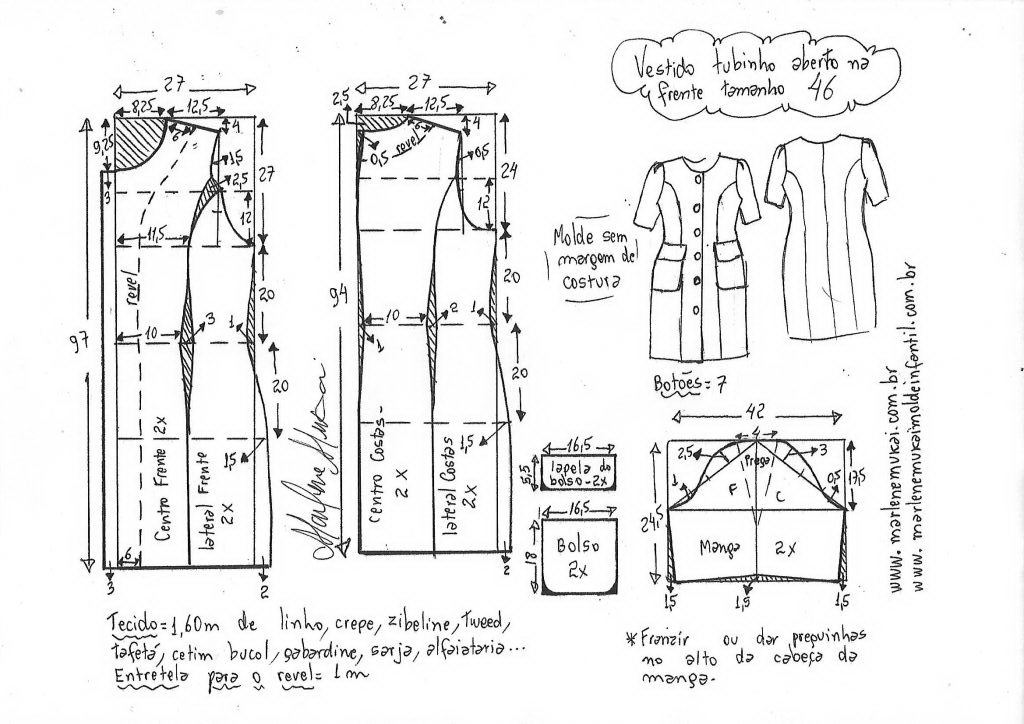 Vestido tubinho aberto na
frente tamanho 46
27
8,25 12,5
9,25
6
4
1,5
2,5
27
3
12
11,5
revel
20
97
10
3
1
20
1,5
Centro Frente 2x
lateral Frente
2x
6
3
2
27
2,5
8,25 12,5
6
4
0,5
revel
0,5
24
12
94
20
10
2
1
1
20
1,5
centro Costas-
2x
lateral Costas
2x
2
Marlene Mukai
Molde sem
margem de
costura
Botões=7
16,5
5,5
lapela do
bolso-2x
16,5
18
Bolso
2x
42
4
2,5
3
Prega
1
F
C
0,5
17,5
24,5
Manga 2x
1,5
1,5
1,5
www.marlenemukai.com.br
www.marlenemukaimoldeinfantil.com.br
Tecido=1,60m de linho, crepe, zibeline, tweed,
tafetá, cetim bucol, gabardine, sarja, alfaiataria...
Entretela para o revel=1m
*Franzir ou dar preguinhas
no alto da cabeça da
manga.